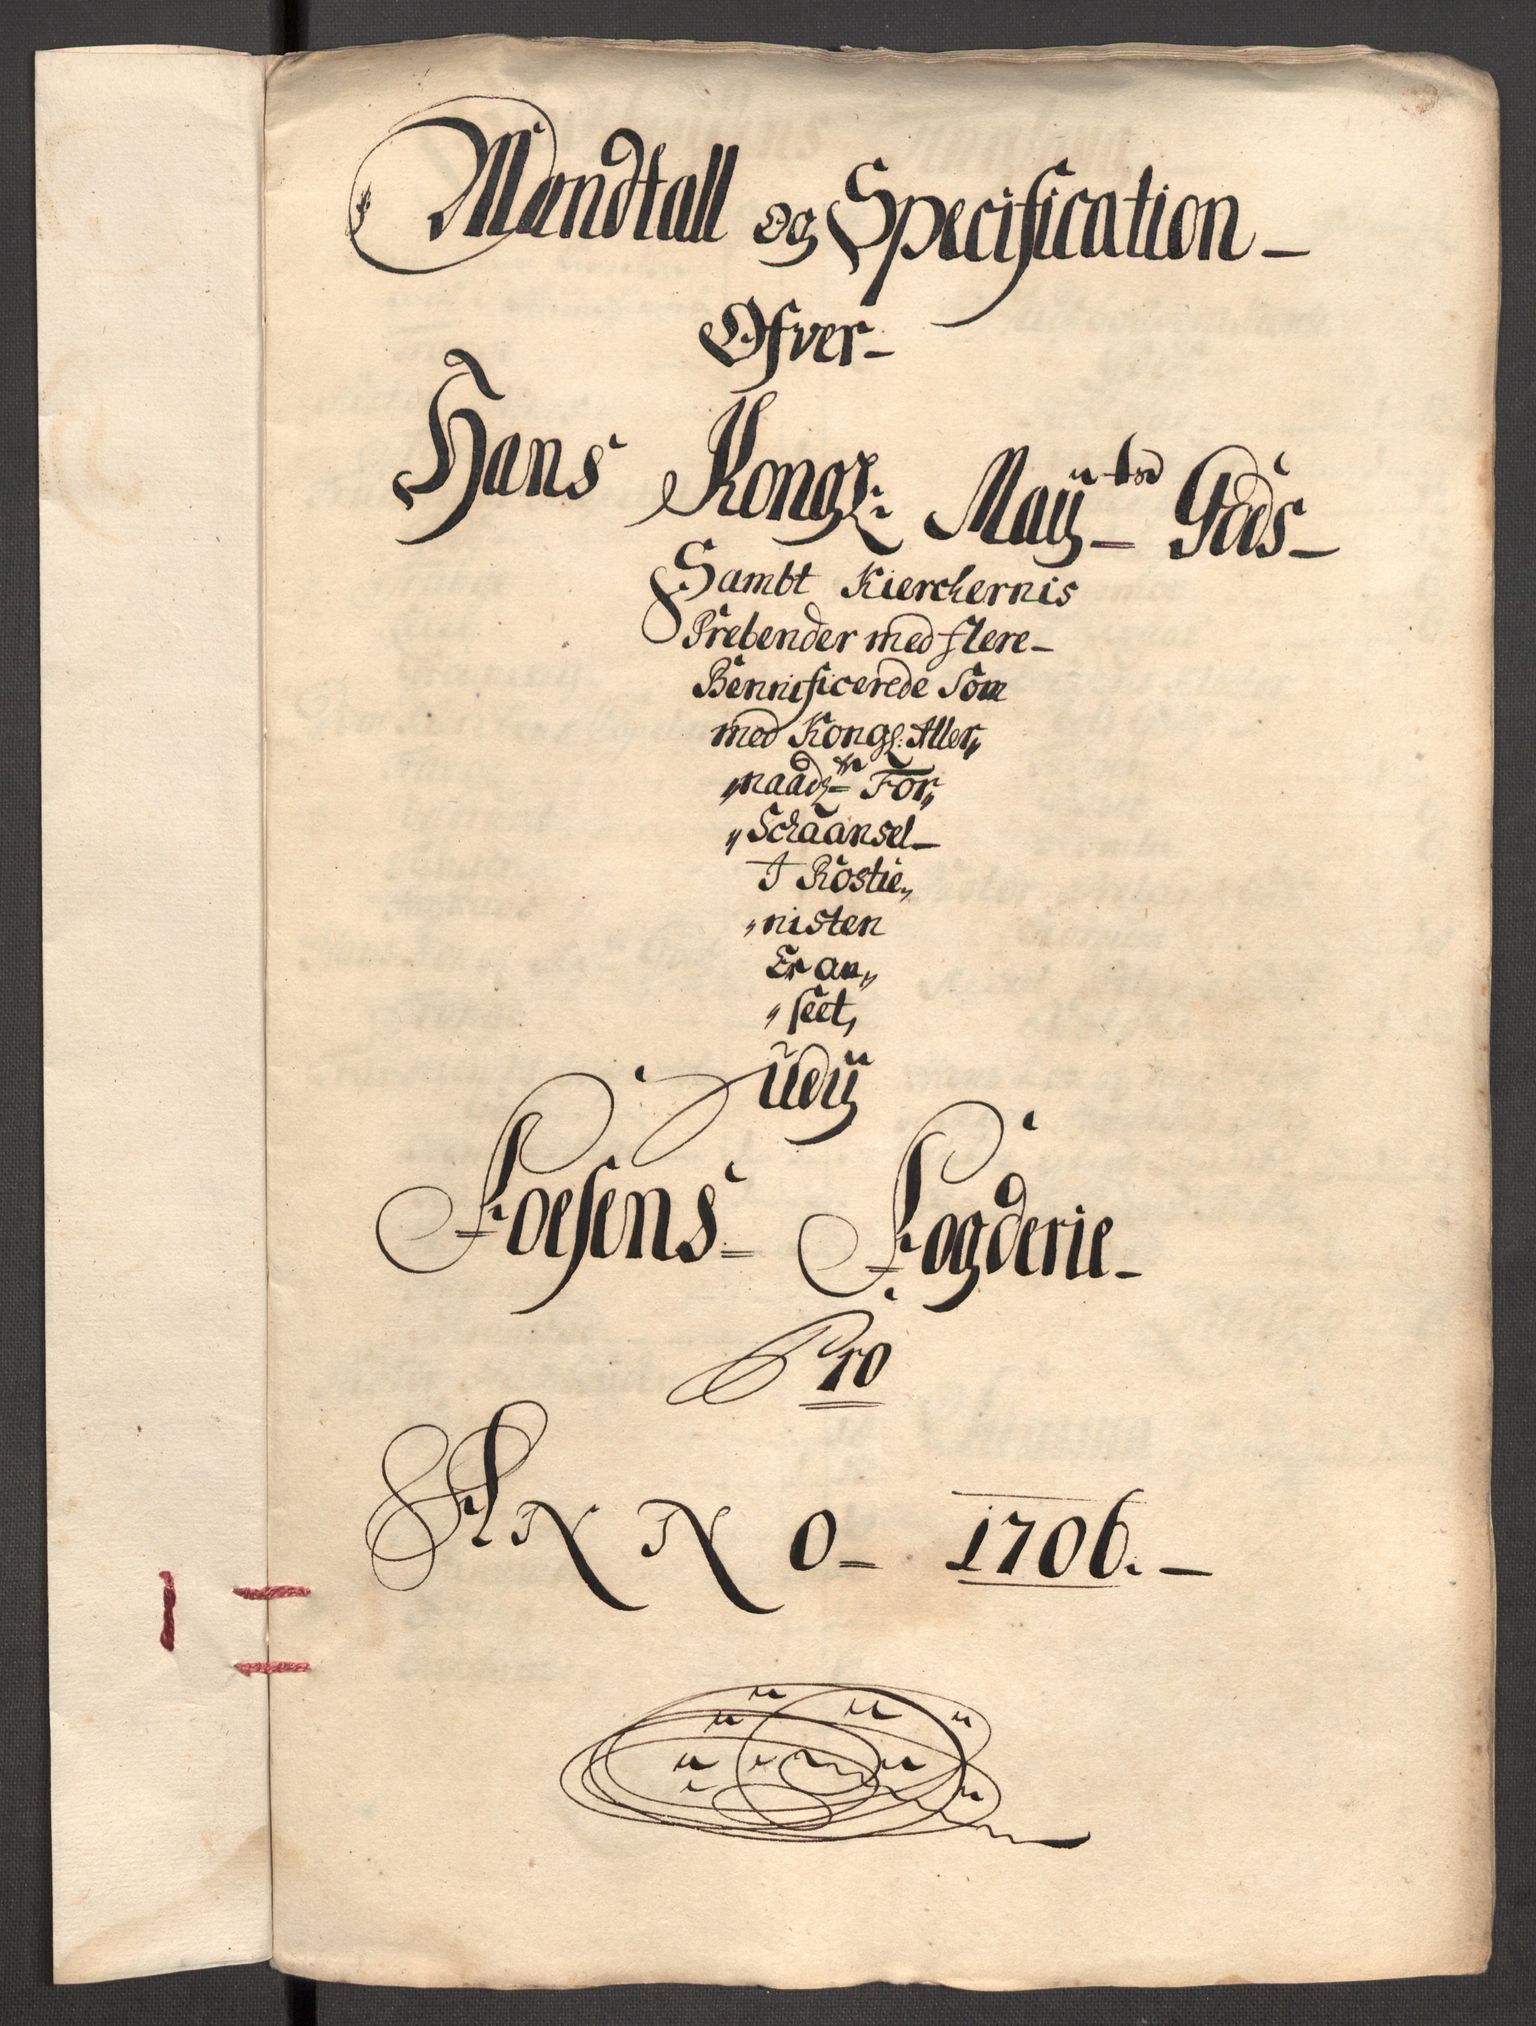 Mandtall og Specification
Ofver
Hans Kongl: Maÿtz Gods
Sambt Kierchernis
Prebender med flere
Bennificerede Som
med Kongl: Aller„
„naadste For„
„Schaansel
I Rostie„
„nisten
Er an„
„seet,
udÿ
Foesens Fogderie
Pro
ANNO 1706.